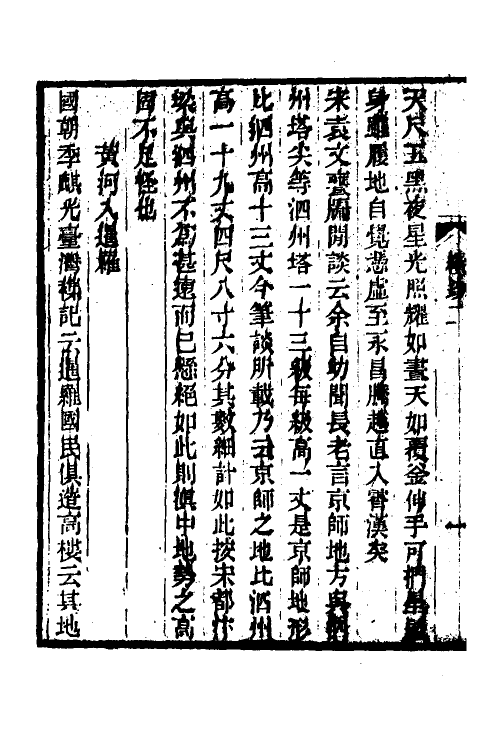 天尺五黑夜星光照耀如晝天如覆釜伸手可捫星
身雖履地自覺懸虛至永昌騰越直入霄漢矣
宋袁文甕牖閒談云余自幼聞長老言京師地方與泗
州塔尖等泗州塔一十三級每級高一丈是京師地形
比泗州高十三丈今筆談所載乃云京師之地比泗州
高一十九丈四尺八寸六分其數細計如此按宋都汴
梁與泗州不爲甚遠而已懸絕如此則滇中地勢之高
固不足怪也
黃河入暹羅
國朝季麒光臺灣稗記云暹羅國民俱造高樓云其地